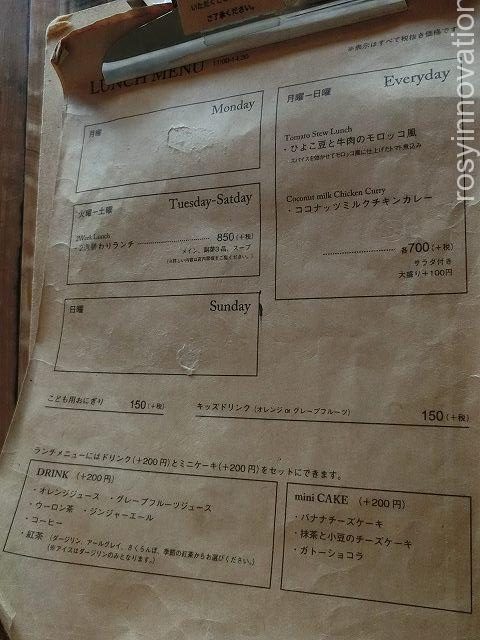 ご了承ください。
※表示はすべて税抜き価格です
LUNCH MENU 11:00-14:30
月曜 Monday
火曜ー土曜 Tuesday-Satday
2Week Lunch
・2週替わりランチ 850(+税)
メイン、副菜3品、スープ
日曜 Sunday
月曜ー日曜 Everyday
Tomato Stew Lunch
・ひよこ豆と牛肉のモロッコ風
スパイスを効かせてモロッコ風に仕上げたトマト煮込み
Coconut milk Chicken Curry
・ココナッツミルクチキンカレー
各700(+税)
サラダ付き
大盛り+100円
こども用おにぎり 150(+税)
キッズドリンク(オレンジ or グレープフルーツ) 150(+税)
ランチメニューにはドリンク(+200円)とミニケーキ(+200円)をセットにできます。
DRINK (+200円)
・オレンジジュース ・グレープフルーツジュース
・ウーロン茶 ・ジンジャーエール
・コーヒー
・紅茶(ダージリン、アールグレイ、さくらんぼ、季節の紅茶からお選びください。)
(※アイスはダージリンのみとなります。)
mini CAKE (+200円)
・バナナチーズケーキ
・抹茶と小豆のチーズケーキ
・ガトーショコラ
rosyinnovation